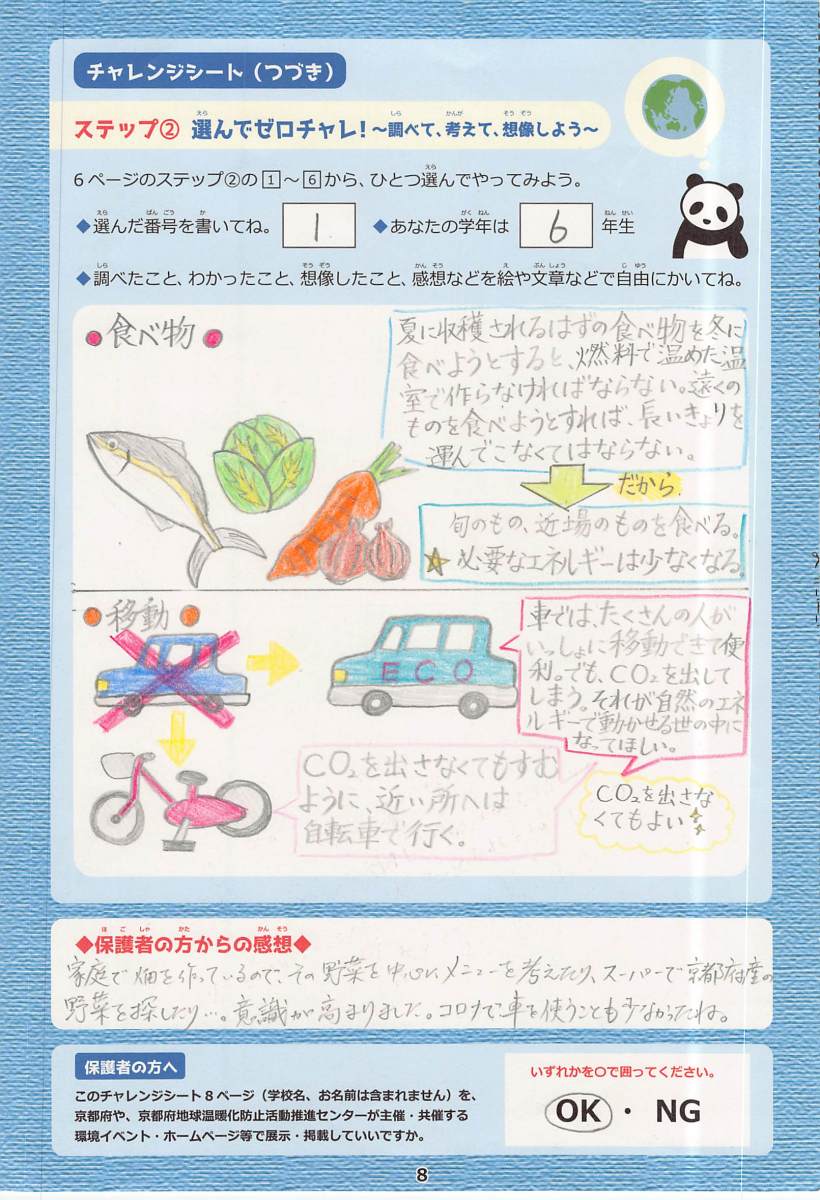 チャレンジシート（つづき）
ステップ② 選んでゼロチャレ！～調べて、考えて、想像しよう～
6ページのステップ②の1～6から、ひとつ選んでやってみよう。
◆選んだ番号を書いてね。 1 ◆あなたの学年は 6 年生
◆調べたこと、わかったこと、想像したこと、感想などを絵や文章などで自由にかいてね。
●食べ物●
夏に収穫されるはずの食べ物を冬に
食べようとすると、燃料で温めた温
室で作らなければならない。遠くの
ものを食べようとすれば、長いきょりを
運んでこなくてはならない。
だから
旬のもの、近場のものを食べる。
★必要なエネルギーは少なくなる。
●移動●
ECO
車では、たくさんの人が
いっしょに移動できて便
利。でも、CO2を出して
しまう。それが自然のエネ
ルギーで動かせる世の中に
なってほしい。
CO2を出さなくてもすむ
ように、近い所へは
自転車で行く。
CO2を出さな
くてもよい
◆保護者の方からの感想◆
家庭で畑を作っているので、その野菜を中心にメニューを考えたり、スーパーで京都府産の
野菜を探したり…。意識が高まりました。コロナで車を使うことも少なかったね。
保護者の方へ
このチャレンジシート8ページ（学校名、お名前は含まれません）を、
京都府や、京都府地球温暖化防止活動推進センターが主催・共催する
環境イベント・ホームページ等で展示・掲載していいですか。
いずれかを○で囲ってください。
OK・NG
8